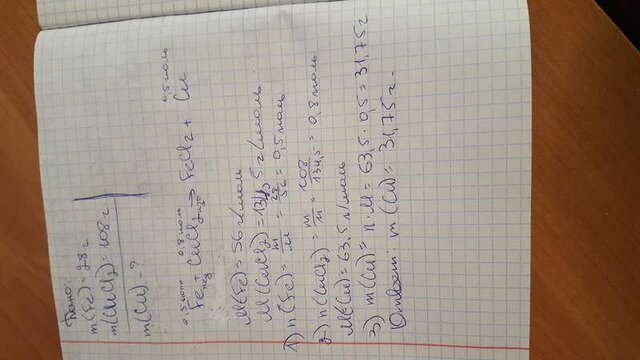 Дано:
m(Fe) = 28 г
m(CuCl2) = 108 г
m(Cu) - ?
0,5 моль 0,8 моль 0,5 моль
Fe + CuCl2 → FeCl2 + Cu
M(Fe) = 56 г/моль
M(CuCl2) = 134,5 г/моль
1) n(Fe) = m/M = 28/56 = 0,5 моль
2) n(CuCl2) = m/M = 108/134,5 = 0,8 моль
M(Cu) = 63,5 г/моль
3) m(Cu) = n·M = 63,5·0,5 = 31,75 г
Ответ: m(Cu) = 31,75 г.